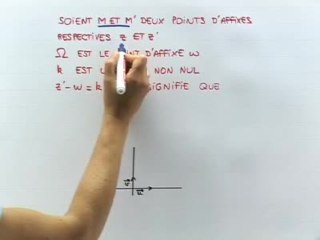 SOIENT M ET M' DEUX POINTS D'AFFIXES
RESPECTIVES z ET z'
Ω EST LE D'AFFIXE w
k EST NON NUL
z'-w=k SIGNIFIE QUE